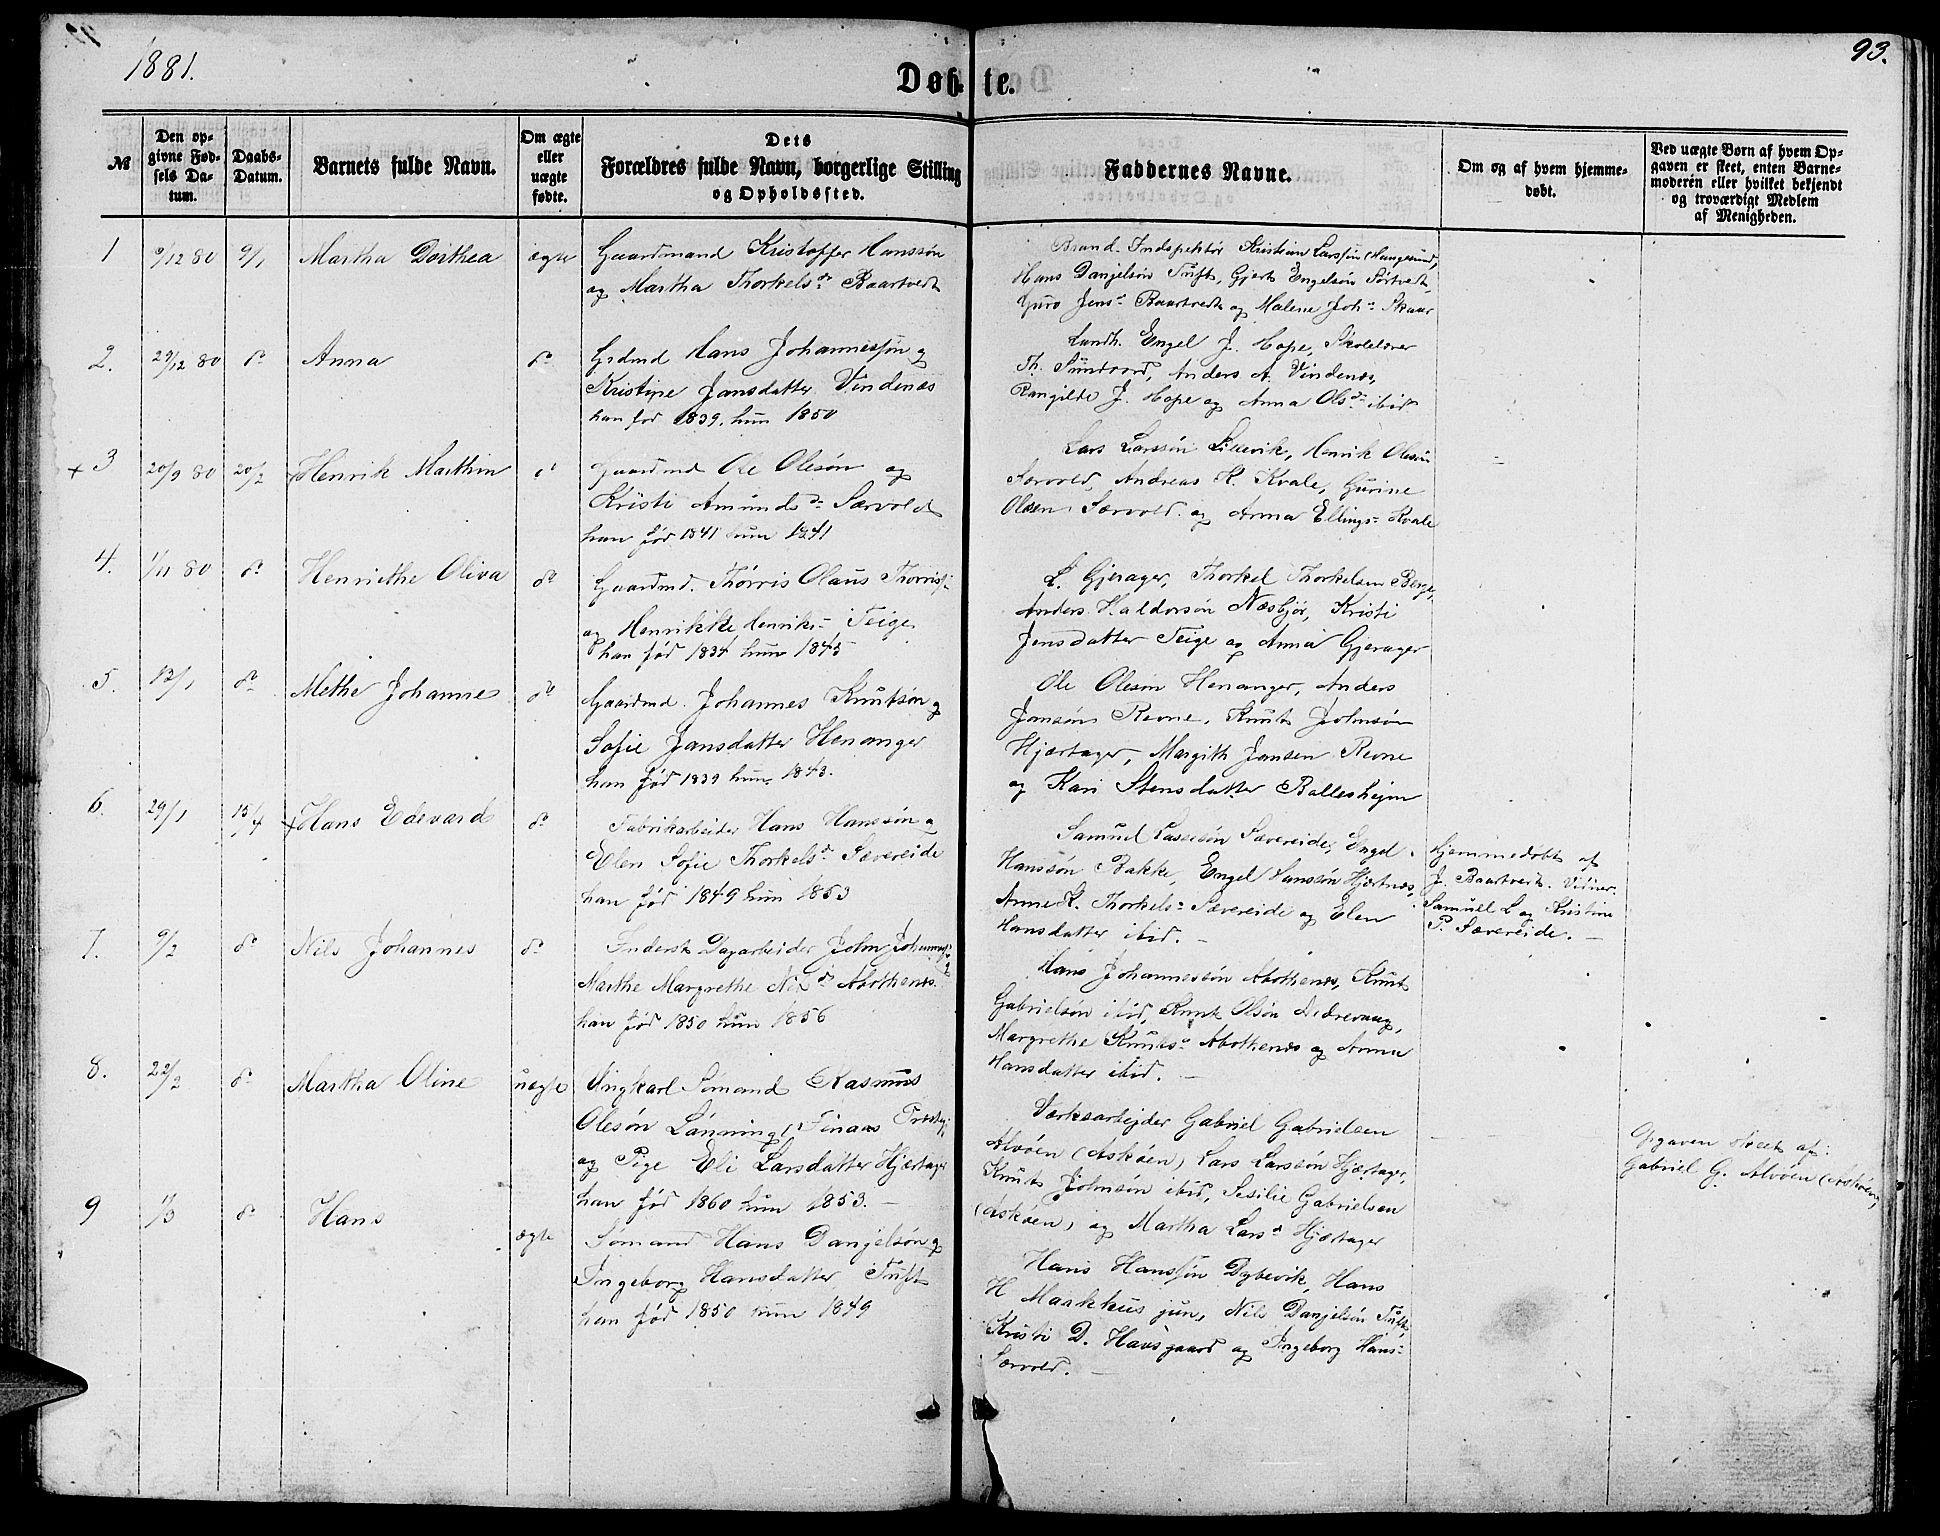 1881.
93.
Døbte.
№
Den opgivne Fødsels Datum.
Daabs-Datum.
Barnets fulde Navn.
Om ægte eller uægte fødte.
Dets Forældres fulde Navn, borgerlige Stilling og Opholdssted.
Faddernes Navne.
Om og af hvem hjemmedøbt.
Ved uægte Børn af hvem Opgaven er skeet, enten Barnemoderen eller hvilket bekjendt og troværdigt Medlem af Menigheden.
1
9/12 80
9/1
Martha Dorthea
ægte
Gaardmand Kristoffer Hanssøn
og Martha Thorkelsd. Baartvedt
Brand-Indspektør Kristian Larssøn (Haugesund),
Hans Danjelsøn Tuft, Gjert Engelsøn Sørtvedt,
Guro Jensd. Baartvedt og Malene Johd. Skaar
2.
29/12 80
do
Anna
do
Grdmd Hans Johannessøn og
Kristine Jansdatter Vindenæs
han fød 1839, hun 1850
Lundh. Engel J. Hope, Skolelærer
Th. Sundvord, Anders A. Vindenæs,
Rangilde J. Hope og Anna Olsd. ibid
+ 3
20/9 80
20/2
+Henrik Marthin
do
Gaardmd Ole Olesøn og
Kristi Amundsd. Særvold
han fød 1841 hun 1841
Lars Larssøn Lillevik, Henrik Olesøn
Særvold, Andreas H. Kvale, Gurine
Olsen Særvold og Anna Ellingsd. Kvale
4.
1/11 80
do
Henriethe Oliva
do
Gaardmd. Thorris Olaus Thorrissj.
og Henrikke Henriksd. Teige
han fød 1834 hun 1845
L. Gjerager, Thorkel Thorkelsen Berge,
Anders Haldorsøn Næsbjør, Kristi
Jensdatter Teige og Anna Gjerager
5.
12/1
do
Methe Johanne
do
Gaardmd. Johannes Knutsøn og
Sofie Jansdatter Henanger
han fød 1839 hun 1843.
Ole Olesøn Henanger, Anders
Jansøn Revne, Knut Johnsøn
Hjærtager, Margith Jansen Revne
og Kari Stensdatter Ballesheim
6.
29/1
15/4
+Hans Edevard
do
Fabrikarbeider Hans Hanssøn og
Elen Sofie Thorkelsd. Sævereide
han fød 1849 hun 1853
Samuel Lassesøn Sævereide, Engel
Hanssøn Bakke, Engel Hanssøn Hjertnæs,
Anne K. Thorkelsd. Sævereide og Elen
Hansdatter ibid. —
Hjemmedøbt af
J. Baartvedt. Vidner.
Samuell L og Kristine
P. Sævereide. —
7.
9/2
do
Nils Johannes
do
Inderst Dagarbeider John Johannessj. og
Marthe Margrethe Nilsd. Abothenæs.
han fød 1850 hun 1856
Hans Johannessøn Abothenæs, Knut
Gabrielsøn ibid, Knut Olsøn Nedrevaag,
Margrethe Knutsd. Abothenæs og Anna
Hansdatter ibid. —
8.
22/2
do
Martha Oline
uægte
Ungkarl Sømand Rasmus
Olesøn Lønning, Finaas Præstegj.
og Pige Eli Larsdatter Hjærtager
han fød 1860 hun 1853. —
Værksarbejder Gabriel Gabrielsen
Alvøen (Askøen) Lars Larssøn Hjærtager,
Knut Johnsøn ibid, Sesilie Gabrielsen
(Askøen) og Martha Larsd. Hjærtager
Opgaven skeet af:
Gabriel G. Alvøen (Askøen)
9
1/3
do
Hans
ægte
Sømand Hans Danjelsøn og
Ingeborg Hansdatter Tuft
han fød 1850 hun 1849
Hans Hanssøn Dybevik, Hans
H Markhus jun, Nils Danjelsøn Tuft,
Kristi D. Hausgaard og Ingeborg Hansd.
Særvold. —